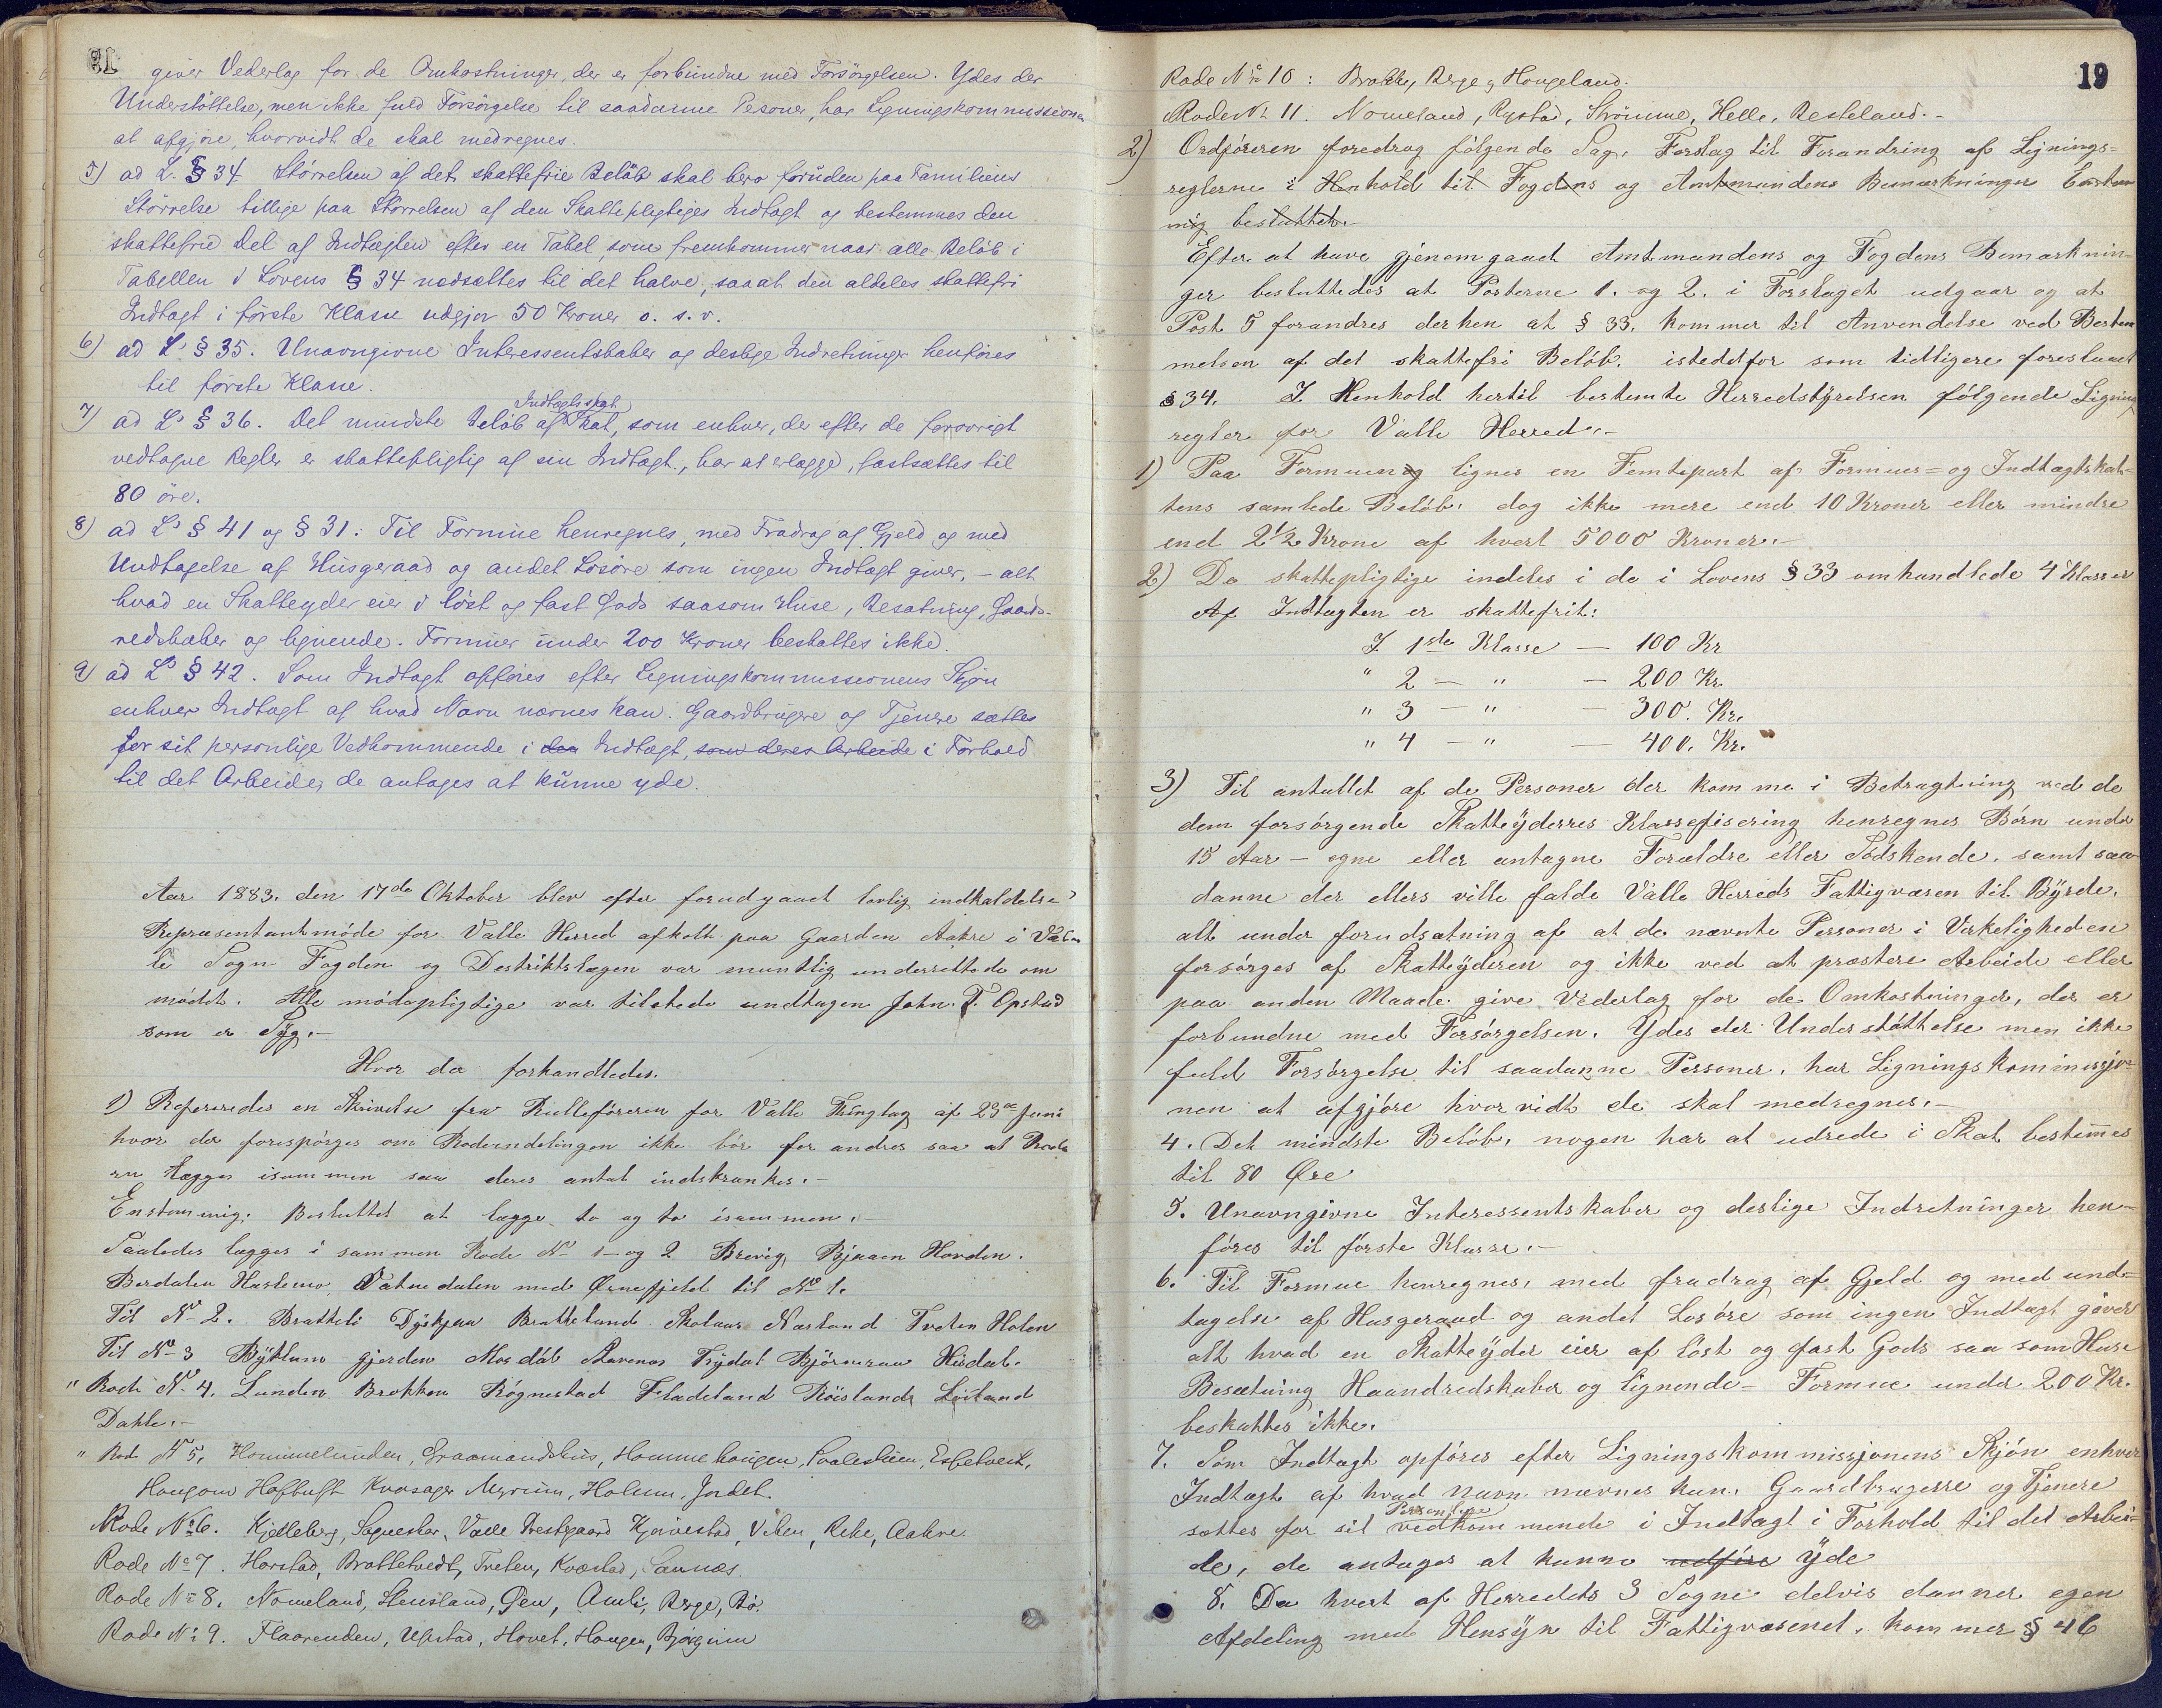 giver Vederlag for de Omkostninger, der er forbundne med Forsörgelsen. Ydes der
Understöttelse, men ikke fuld Forsörgelse til saadanne Pesoner, har Ligningskommissionen
at afgjöre, hvorvidt de skal medregnes.
5) ad L. § 34. Störrelsen af det skattefrie Belöb skal bero foruden paa Familiens
Störrelse tillige paa Störrelsen af den Skattepligtiges Indtægt og bestemmes den
skattefrie Del af Indtægten efter en Tabel, som fremkommer naar alle Belöb i
Tabellen i Lovens § 34 nedsættes til det halve, saaat den aldeles skattefri
Indtægt i förste Klasse udgjör 50 Kroner o. s. v.
6) ad L. § 35. Unavngivne Interessentskaber og deslige Indretninger henföres
til förste Klasse.
7) ad L. § 36. Det mindste Belöb af Indtægtsskat Skat, som enhver, der efter de forövrigt
vedtagne Regler er skattepligtig af sin Indtægt, har at erlægge, fastsættes til
80 öre.
8) ad L. § 41 og § 31: Til Formue henregnes, med Fradrag af Gjeld og med
Undtagelse af Husgeraad og andet Lösöre som ingen Indtægt giver, – alt
hvad en Skatteyder eier i löst og fast Gods saasom Huse, Besætning, Gaards-
redskaber og lignende. Formuer under 200 Kroner beskattes ikke.
9) ad L. § 42. Som Indtægt opföres efter Ligningskommissionens Skjön
enhver Indtægt af hvad Navn nævnes kan. Gaardbrugere og Tjenere sættes
for sit personlige Vedkommende i den Indtægt, som deres Arbeide i Forhold
til det Arbeide, de antages at kunne yde.
Aar 1883. den 17de Oktober blev efter forudgaaet lovlig indkaldelse
Repræsentantmöde for Valle Herred afholdt paa Gaarden Aakre i Val-
le Sogn Fogden og Destriktslægen var muntlig underrettede om
mödet. Alle mödepligtige var tilstede undtagen John T. Opstad
som er Syg.–
Hvor da forhandledes.
1) Refereredes en Skrivelse fra Rulleföreren for Valle Thinglag af 23de Juni
hvor der forespörges om Rodeindelingen ikke bör forandres saa at Rode
rn lægges isammen saa deres antal indskrænkes.–
Enstemmig. Besluttet at lægge to og to isammen.–
Saaledes lægges i sammen Rode No 1– og 2 Brevig, Bjaaen Hovden.
Berdalen Hasleno, Vatnedalen med Ørnefjeld til No 1.
Til No 2. Bratteli Dyskjaa Brattelund Skolaas Næsland Tveten Holen
Til No 3 Byklum gjerden Mosdöl Stavenes Trydal Bjørnaraa Hisdal.
" Rode No 4. Lunden Brokken Rögnestad Fladeland Röislands Löiland
Dahle.–
" Rod No 5. Hommelunden, Graamandshus, Hommehaugen, Paaleskeen, Espetveit,
Haugom Hoftuft Kvasager Myrum, Holum, Jordet.
Rode No 6. Kjelleberg, Sagneskar, Valle Prestgaard Kjævestad, Viken, Rike, Aakre.
Rode No 7. Harstad, Brottetvedt, Tveten, Kvæstad, Sannæs.
Rode No 8. Nomeland, Stensland, Øen, Amli, Berge, Bö.
Rode No 9. Flaarenden, Upstad, Hovet, Haugen, Bjørgum
19
Rode No 10: Brokke, Berge, Haugeland.
Rode No 11. Nomeland, Rystad, Strömme, Helle, Besteland.–
2) Ordföreren foredrog fölgende Sag. Forslag til Forandring af Lignings=
reglerne i Henhold til Fogdens og Amtmandens Bemærkninger Enstem
mig besluttet.–
Efter at have gjenemgaaet Amtmandens og Fogdens Bemærknin-
ger besluttedes at Posterne 1. og 2. i Forslaget udgaar og at
Post 5 forandres derhen at § 33. kommer til Anvendelse ved Bestem
melsen af det skattefri Belöb. istedetfor som tidligere foreslaaet
§ 34. I Henhold hertil bestemte Herredstyrelsen fölgende Ligning
regler for Valle Herred.–
1) Paa Formuen og lignes en Femtepart af Formues= og Indtægtskat-
tens samlede Belöb. dog ikke mere end 10 Kroner eller mindre
end 2 1/2 Krone af hvert 5000 Kroner.–
2) De skattepligtige indeles i de i Lovens § 33 omhandlede 4 Klasser
Af Indtægten er skattefrit:
I 1ste Klasse — 100 Kr
" 2 — " — 200 Kr.
" 3 — " — 300. Kr.
" 4 — " — 400. Kr.
3) Til antallet af de Personer der komme i Betragtning ved de
dem forsörgende Skatteyderres Klassefisering henregnes Börn under
15 Aar – egne eller antagne Forældre eller Södskende. samt saa-
danne der ellers ville falde Valle Herreds Fattigvæsen til Byrde.
alt under forudsætning af at de nævnte Personer i Virkeligheden
forsörges af Skatteyderen og ikke ved at præstere Arbeide eller
paa anden Maade give Vederlag for de Omkostninger, der er
forbundne med Forsörgelsen. Ydes der Understöttelse men ikke
fuld Forsörgelse til saadanne Personer, har Ligningskommissjo-
nen at afgjöre hvorvidt de skal medregnes.–
4. Det mindste Belöb, nogen har at udrede i Skat bestemes
til 80 Øre
5. Unavngivne Interessentskaber og deslige Indretninger hen-
föres til förste Klasse.–
6. Til Formue henregnes, med fradrag af Gjeld og med und=
tagelse af Husgeraad og andet Losöre som ingen Indtægt giver
alt hvad en Skatteyder eier af löst og fast Gods saa som Huse
Besætning Haandredskaber og lignende– Formue under 200 Kr.
beskattes ikke.
7. Som Indtægt opföres efter Ligningskommissjonens Skjön enhver
Indtægt af hvad navn nævnes kan. Gaardbrugerre og Tjenere
sættes for sit Personlige vedkommende i Indtægt i Forhold til det Arbei-
de, de antages at kunne udföre yde
8. Da hvert af Herredets 3 Sogne delvis danner egen
Afdeling med Hensyn til Fattigvæsenet, kommer § 46